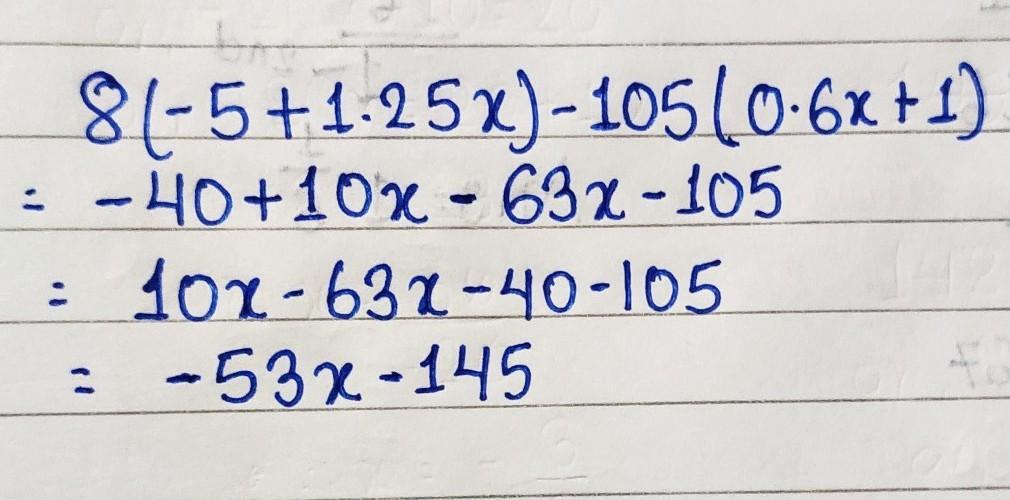 8(-5+1.25x)-105(0.6x+1)
= -40+10x-63x-105
= 10x-63x-40-105
= -53x-145